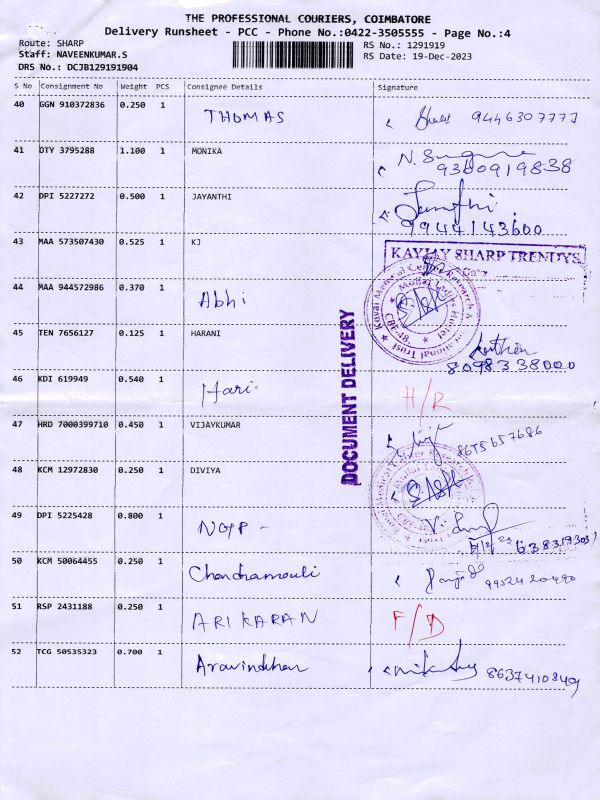 THE PROFESSIONAL COURIERS, COIMBATORE
Delivery Runsheet - PCC - Phone No.:0422-3505555 - Page No.:4
Route: SHARP RS No.: 1291919
Staff: NAVEENKUMAR.S RS Date: 19-Dec-2023
DRS No.: DCJB129191904
S No Consignment No Weight PCS Consignee Details Signature
40 GGN 910372836 0.250 1 THOMAS 9446307777
41 DTY 3795288 1.100 1 MONIKA 9360919838
42 DPI 5227272 0.500 1 JAYANTHI 9944143600
43 MAA 573507430 0.525 1 KJ
KAYJAY SHARP TRENDYS
44 MAA 944572986 0.370 1 Abhi
45 TEN 7656127 0.125 1 HARANI
8098338000
46 KDI 619949 0.540 1 Hari. H/R
47 HRD 7000399710 0.450 1 VIJAYKUMAR 8675657686
48 KCM 12972830 0.250 1 DIVIYA
49 DPI 5225428 0.800 1
50 KCM 50064455 0.250 1 Chandramouli 9952420490
51 RSP 2431188 0.250 1 ARIKARAN F/D
52 TCG 50535323 0.700 1 Aravindhan 8637410849
DOCUMENT DELIVERY